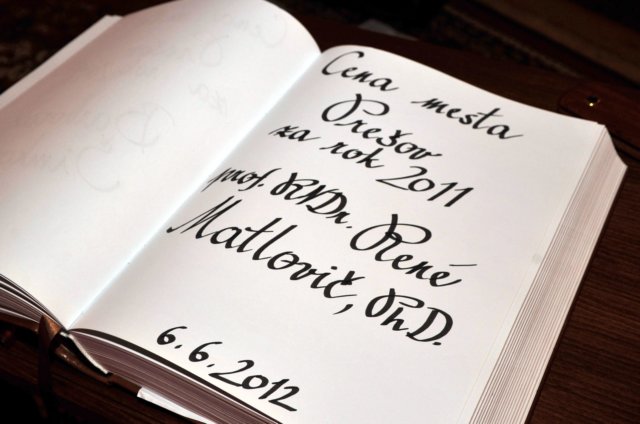 Cena mesta
Prešov
za rok 2011
prof. RNDr. René
Matlovič, PhD.
6.6.2012